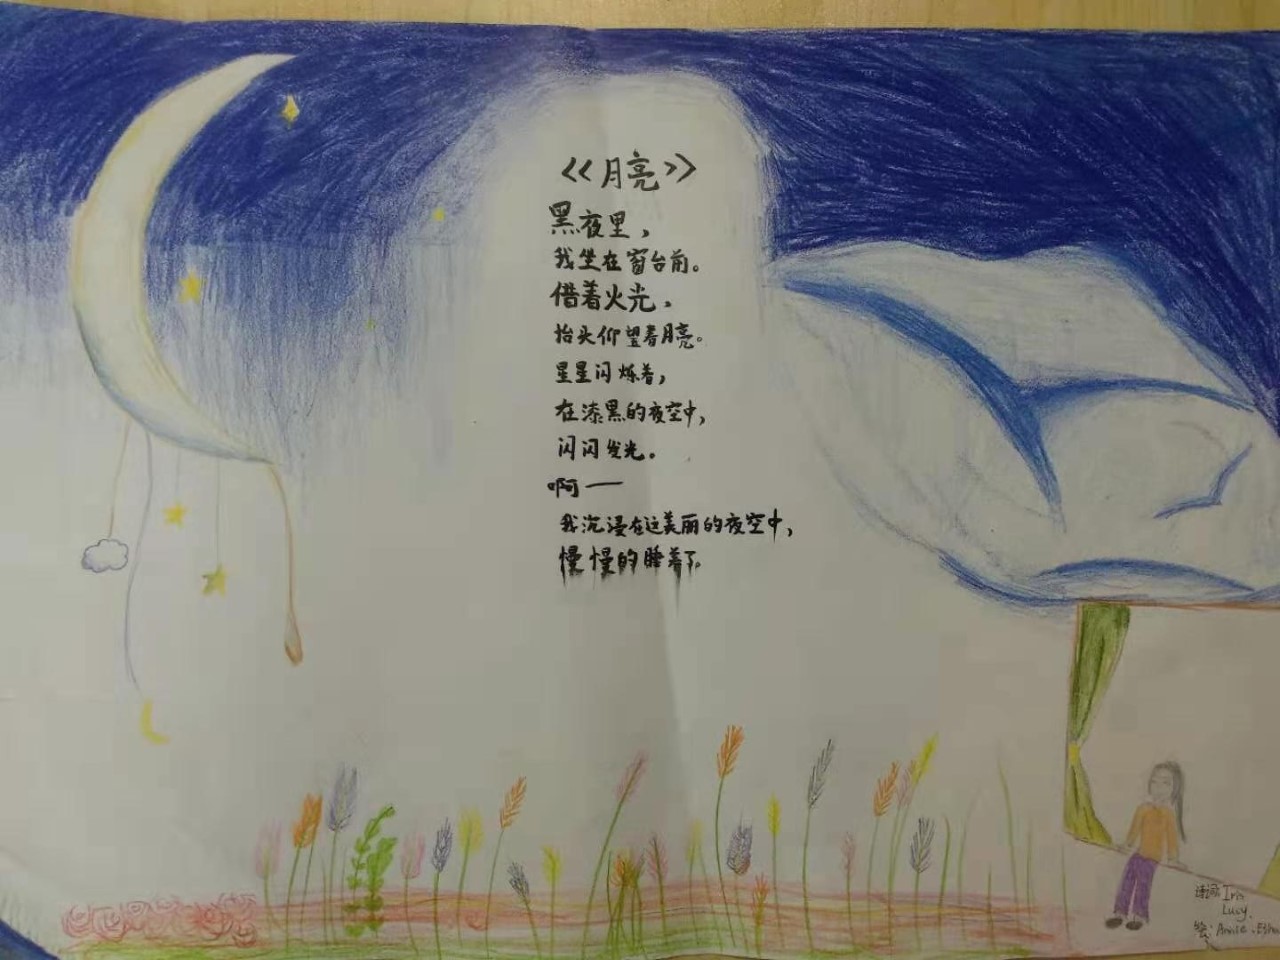 <<月亮>>
黑夜里，
我坐在窗台前。
借着火光，
抬头仰望着月亮。
星星闪烁着，
在漆黑的夜空中，
闪闪发光。
啊——
我沉浸在这美丽的夜空中，
慢慢的睡着了。
诗词: Iris
Lucy.
绘: Annie.